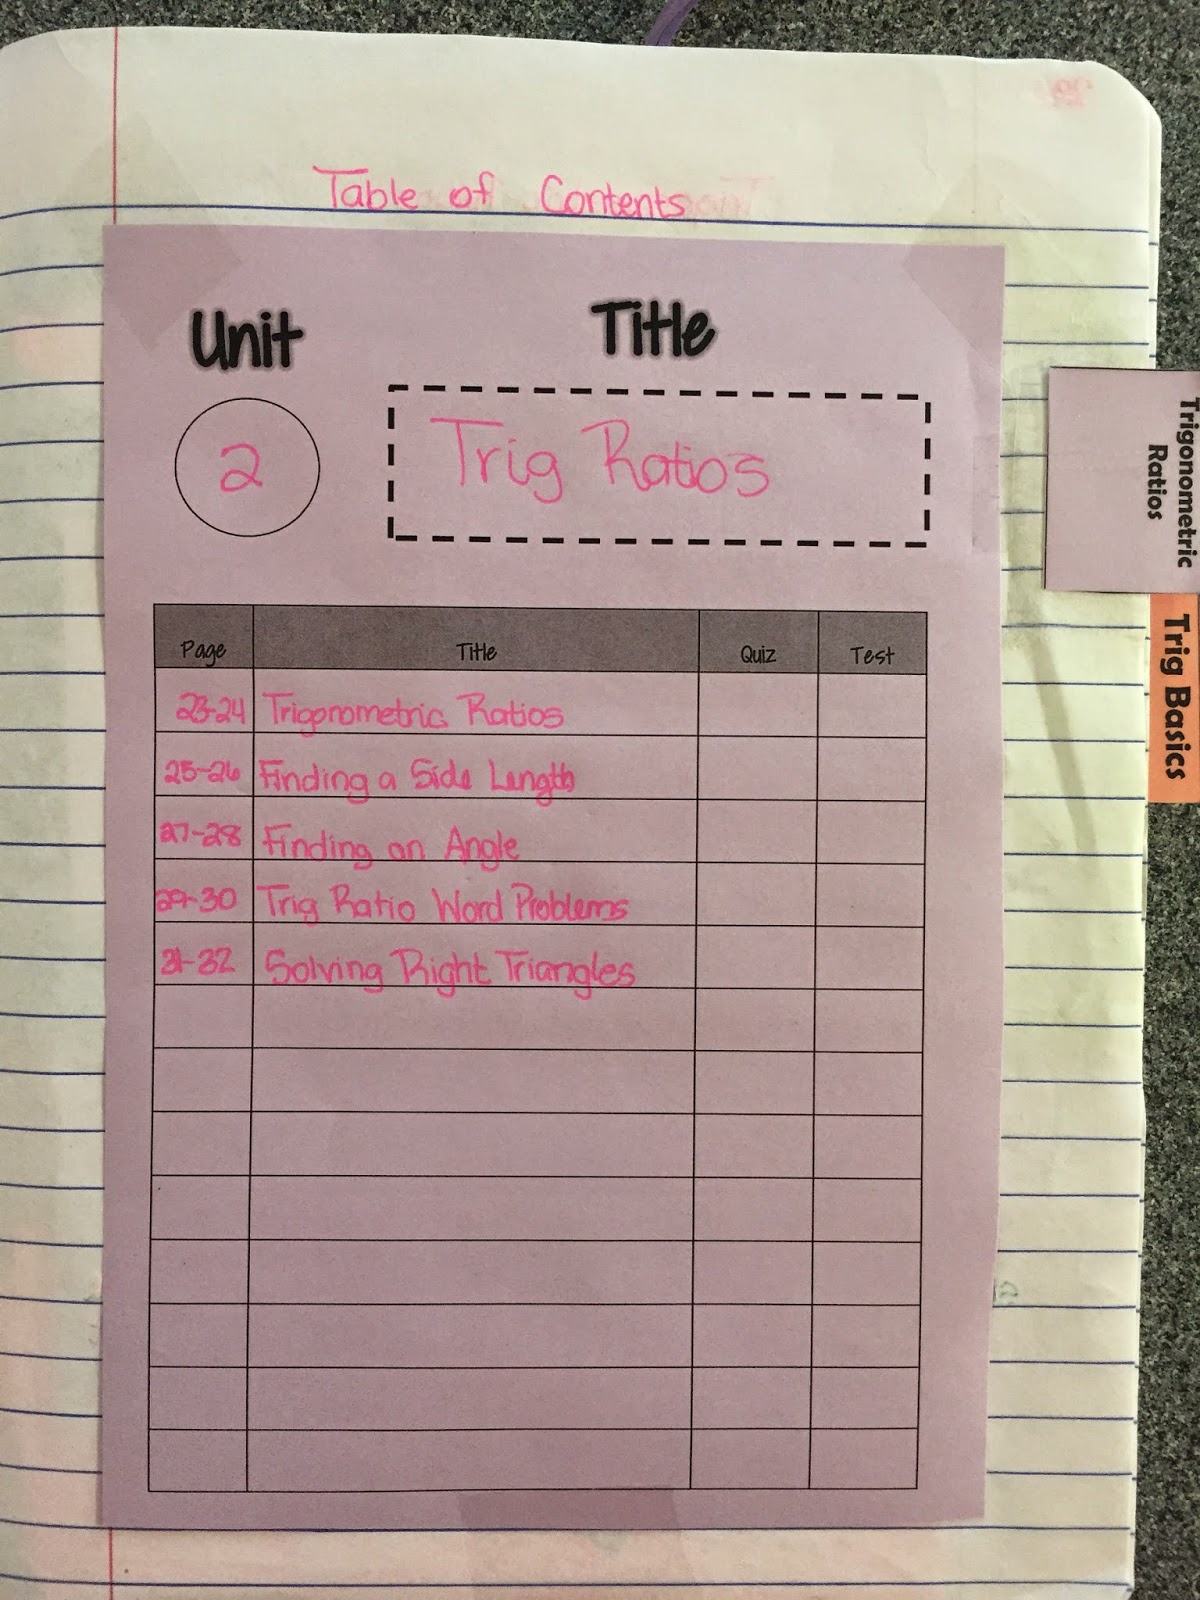 Table of Contents
Unit Title
2 Trig Ratios
Page Title Quiz Test
23-24 Trigonometric Ratios
25-26 Finding a Side Length
27-28 Finding an Angle
29-30 Trig Ratio Word Problems
31-32 Solving Right Triangles
Trigonometric
Ratios
Trig Basics